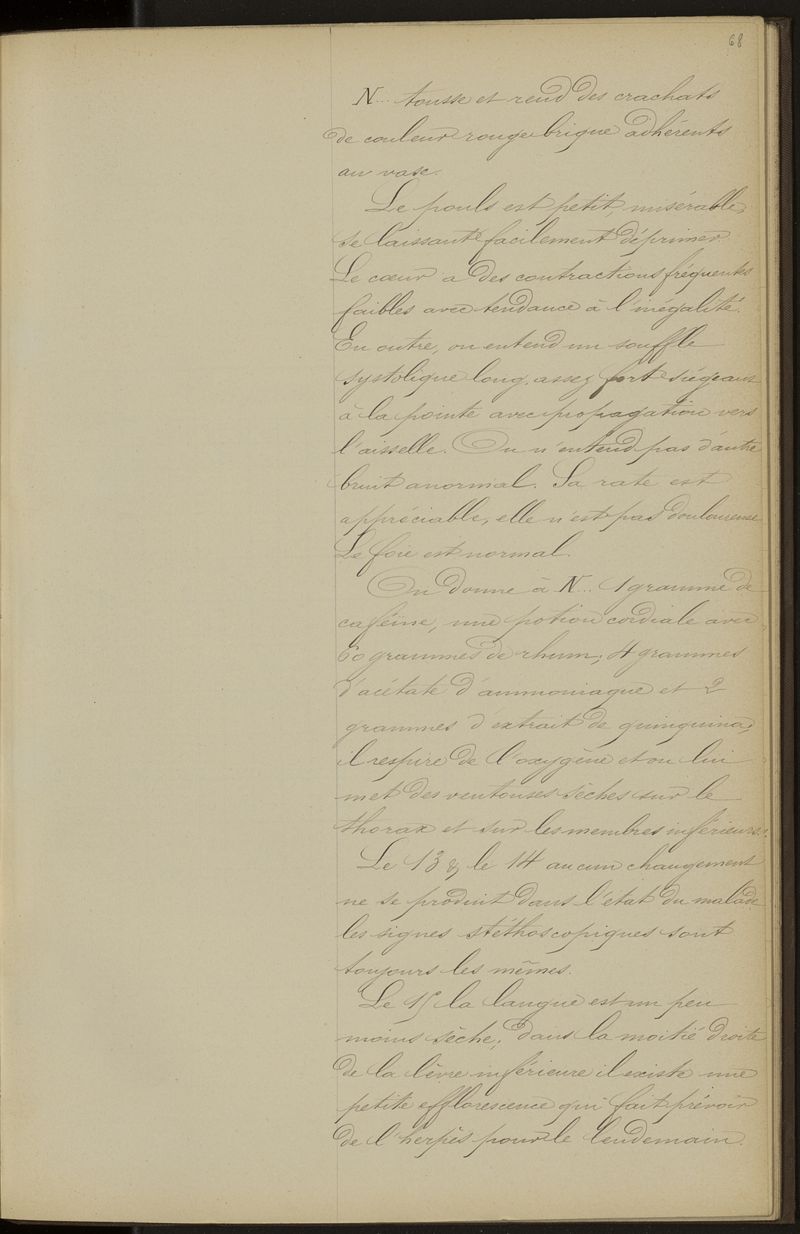 68
N... tousse et rend des crachats
de couleur rouge brique adhérents
au vase.
Le pouls est petit, misérable,
se laissant facilement déprimer.
Le cœur a des contractions fréquentes
faibles avec tendance à l'inégalité.
En outre, on entend un souffle
systolique long, assez fort siégeant
à la pointe avec propagation vers
l'aisselle. On n'entend pas d'autre
bruit anormal. La rate est
appréciable, elle n'est pas douloureuse.
Le foie est normal.
On donne à N... 1 gramme de
caféine, une potion cordiale avec
60 grammes de rhum, 4 grammes
d'acétate d'ammoniaque et 2
grammes d'extrait de quinquina,
il respire de l'oxygène et on lui
met des ventouses sèches sur le
thorax et sur les membres inférieurs.
Le 13 & le 14 aucun changement
ne se produit dans l'état du malade
les signes stéthoscopiques sont
toujours les mêmes.
Le 15 la langue est un peu
moins sèche; dans la moitié droite
de la lèvre inférieure il existe une
petite efflorescence qui fait prévoir
de l'herpès pour le lendemain.